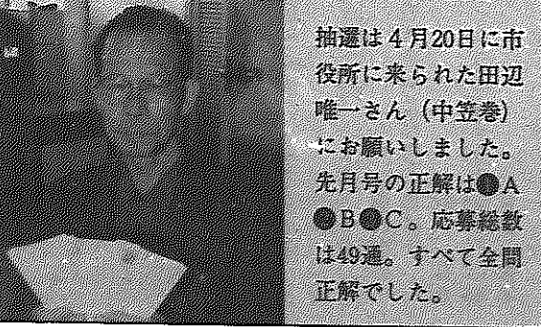 抽選は4月20日に市
役所に来られた田辺
唯一さん（中笠巻）
にお願いしました。
先月号の正解は❶A
❷B❸C。応募総数
は49通。すべて全問
正解でした。